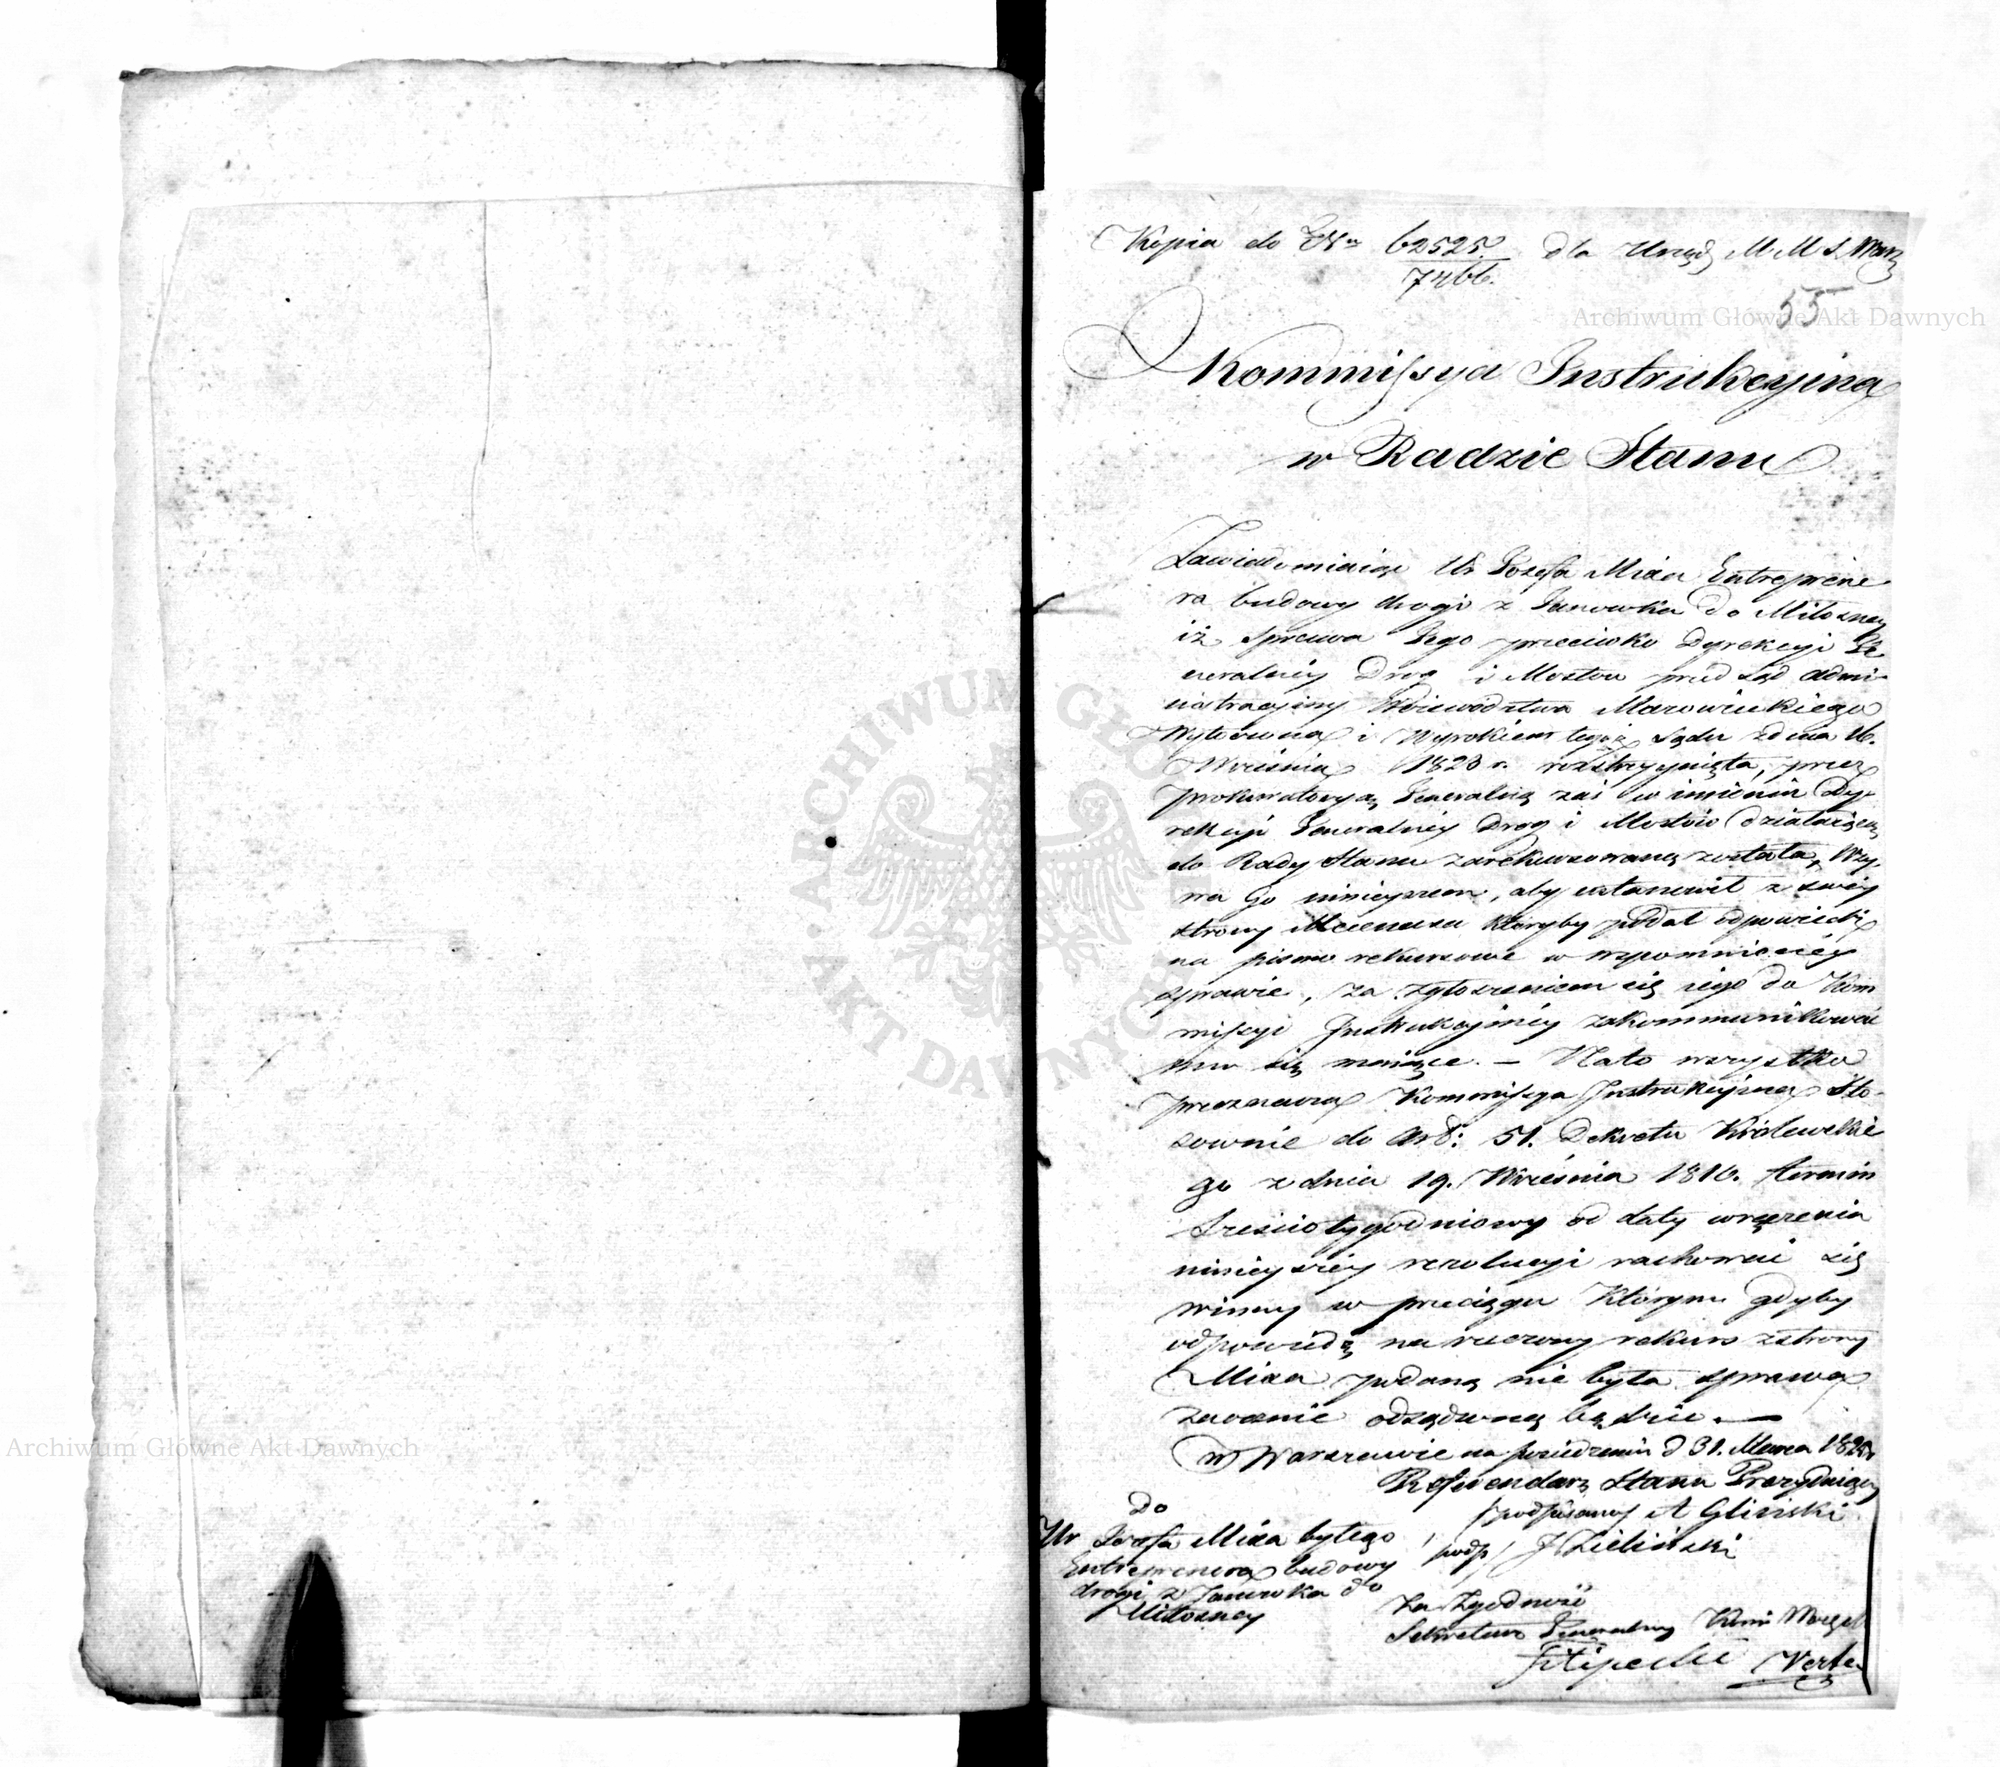 Kopia do Nru 62525/7466. dla Urzęd M. M. S. Warsz
55
Kommissya Instrukcyina
w Radzie Stanu
Zawiadomiaiąc Ur Jozefa Mixa Entreprene
ra budowy drogi z Janowka do Miłosney
iż sprawa Jego przeciwko Dyrekcyi Je
neralney Drog i Mostow przed Sąd Admi-
nistracyiny Woiewodztwa Mazowieckiego
Wytoczona i Wyrokiem tegoż Sądu z dnia 16.
Września 1823 r. rozstrzygnięta, przez
Prokuratoryą Jeneralną zaś w imieniu Dy-
rekcyi Jeneralney Drog i Mostów działaiącą
do Rady Stanu zarekursowaną została, Wzy-
wa Go ninieyszem, aby ustanowił z swéy
strony Mecenasa któryby podał odpowiedź
na pismo rekursowe w wspomnioney
sprawie, za zgłoszeniem się iego do Kom
missyi Instrukcyiney zakommunikować
mu się maiące. — Nato wszystko
przeznacza Kommissya Instrukcyina Sto-
sownie do Art: 51. Dekretu Królewskie
go z dnia 19. Września 1810. termin
sześciotygodniowy od daty wręczenia
ninieyszéy rezolucyi rachować się
winny w przeciągu którym gdyby
odpowiedź na rzeczony rekurs z strony
Mixa podaną nie była sprawa
zaocznie odsądzoną będzie. —
w Warszawie na posiedzeniu d 31. Marca
Referendarz Stanu Prezyduiący
/podpisano/ A Gliński
/podp/ J Zieliński
Do
Ur Jozefa Mixa byłego
Entreprenera budowy
drogi z Janowka do
Miłosney
Za Zgodność
Sekretarz Jeneralny Kom Woiew
Filipecki